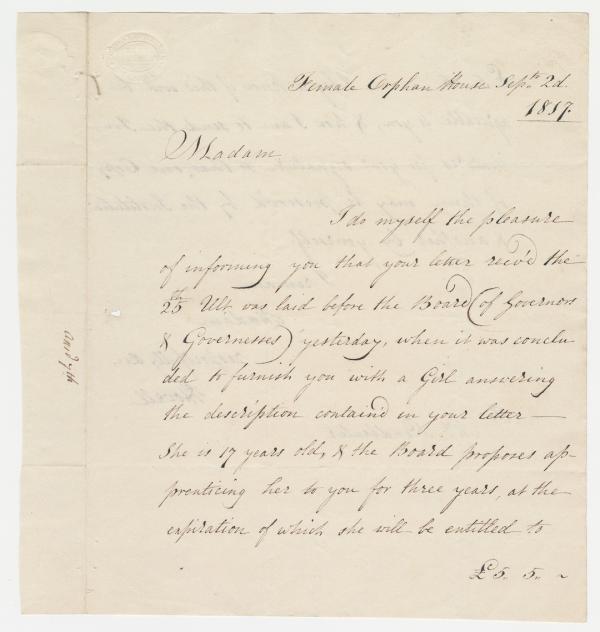 Female Orphan House Septr. 2d.
1817.
Madam
I do myself the pleasure
of informing you that your letter reciv'd the
25th Ult. was laid before the Board (of Governors
& Governesses) yesterday, when it was conclu
ded to furnish you with a Girl answering
the description contain'd in your letter —
She is 17 years old, & the Board proposes ap-
prenticing her to you for three years, at the
expiration of which she will be entitled to
£5. 5. ~
ansd 7th